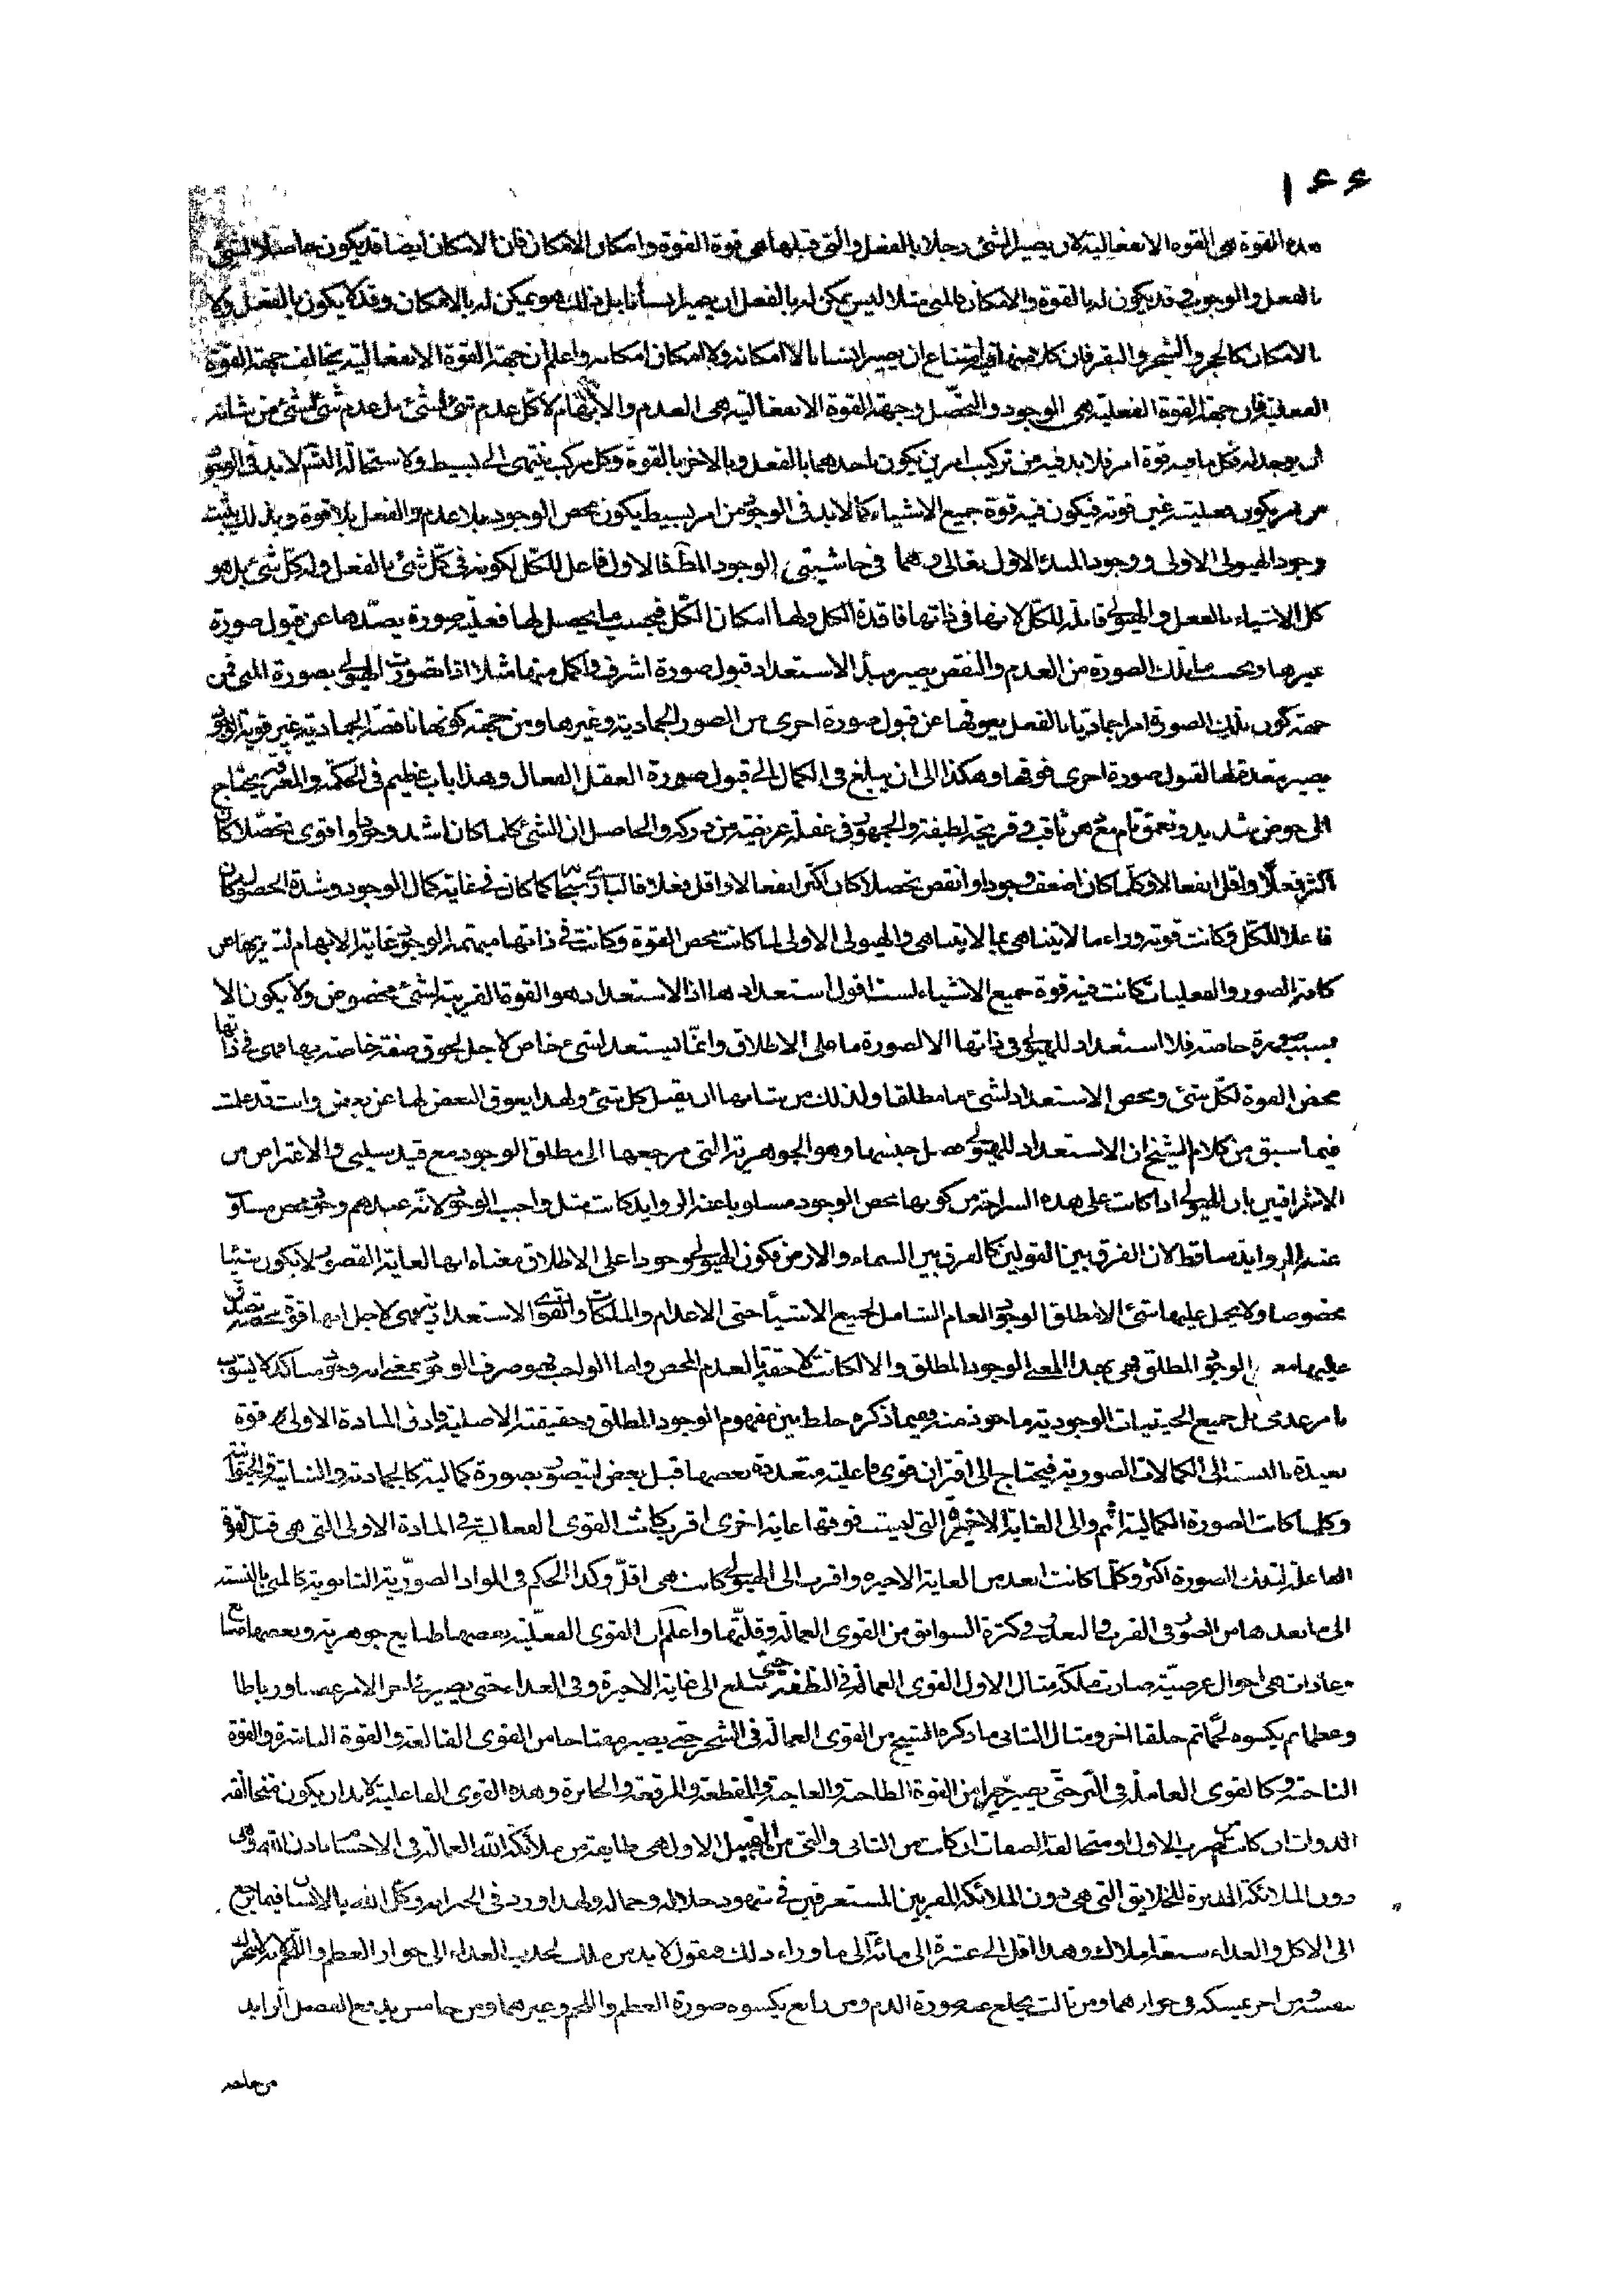 ١٤٤
هذه القوة هى القوه الانفعالية لان يصير الشئ رجلا بالفعل والتى قبلها هى قوة القوة وامكان الامكان فان الامكان ايضا قد يكون حاصلا لشئ
بالفعل والوجود وقد يكون له بالقوة والامكان فالمنى مثلا ليس يمكن له بالفعل ان يصير انسانا بل ذلك هو ممكن له بالامكان وقد لا يكون بالفعل ولا
بالامكان كالحجر والشجر والبقر فان كل منها امتناع ان يصير انسانا لا امكانه ولا امكان امكانه واعلم ان جهة القوة الانفعالية يخالف جهة القوة
الفعلية فان جهة القوة الفعلية هى الوجود والتحصّل وجهة القوة الانفعالية هى العدم والابهام لا كل عدم شئ لشئ بل عدم شئ لشئ من شانه
ان يوجد له فكل ما فيه قوة امر فلا بد فيه من تركيب امرين يكون باحدهما بالفعل وبالاخر بالقوة وكل مركب ينتهى الى بسيط ولاستحالة التسم لا بد فى الوجود
من امر يكون فعليته غير قوته فيكون فيه قوة جميع الاشياء كما لا بد فى الوجود من امر بسيط يكون محض الوجود بلا عدم والفعل بلا قوة وبذلك يثبت
وجود الهيولى الاولى ووجود المبدء الاول تعالى وهما فى حاشيتى الوجود المطلق فالاول فاعل للكل لكونه فى كل شئ بالفعل وله كل شئ بل هو
كل الاشياء بالفعل والهيولى قابلة للكل لانها فى ذاتها فاقدة الكل ولها امكان الكل فبحسب ما يحصل لها فعلية صورة يصدها عن قبول صورة
غيرها وبحسب ما بتلك الصورة من العدم والنقص يصير مبدأ الاستعداد قبول صورة اشرف واكمل منها مثلا اذا تصورت الهيولى بصورة المنى فمن
جهة كون تلك الصورة امرا جماديا بالفعل يعوقها عن قبول صورة اخرى من الصور الجمادية وغيرها ومن جهة كونها ناقصة الجمادية غير قوية الوجود
يصير معدة لها لقبول صورة اخرى فوقها وهكذا الى ان يبلغ فى الكمال الى قبول صورة العقل الفعال وهذا باب عظيم فى الحكمة والمعرفة يحتاج
الى خوض شديد وتعمق تام مع ذهن ثاقب وقريحة لطيفة والجمهور فى غفلة عريضة من دركه والحاصل ان الشئ كلما كان اشد وجودا واقوى تحصلا كان
اكثر فعلا واقل انفعالا وكلما كان اضعف وجودا وانقص تحصلا كان اكثر انفعالا واقل فعلا فالبارى سبحانه لما كان فى غاية كمال الوجود وشدة الحصول كان
فاعلا للكل وكانت قوته وراء ما لا يتناهى بما لا يتناهى والهيولى الاولى لما كانت محض القوة وكانت فى ذاتها مبهمة الوجود غاية الابهام لتعريها عن
كافة الصور والفعليات كانت فيه قوة جميع الاشياء لست اقول استعدادها اذ الاستعداد هو القوة القريبة لشئ مخصوص ولا يكون الا
بسبب صورة خاصة فلا استعداد للهيولى فى ذاتها الا لصورة ما على الاطلاق وانما يستعد لشئ خاص لاجل لحوق صفة خاصة بها فهى فى ذاتها
محض القوة لكل شئ ومحض الاستعداد لشئ ما مطلقا ولذلك من شانها ان يقبل كل شئ ولهذا يعوق البعض لها عن بعض وانت قد علمت
فيما سبق من كلام الشيخ ان الاستعداد للهيولى فصل جنسها وهو الجوهرية التى مرجعها الى مطلق الوجود مع قيد سلبى والاعتراض من
الاشراقيين بان الهيولى اذا كانت على هذه السذاجة من كونها محض الوجود مسلوبا عنه الزوايد كانت مثل واجب الوجود لانه عندهم وجود محض مسلوب
عنه الزوايد ساقط لان الفرق بين القولين كالفرق بين السماء والارض فكون الهيولى وجودا على الاطلاق معناه انها لغاية القصور لا يكون شيئا
مخصوصا ولا يحمل عليها شئ الا مطلق الوجود العام الشامل لجميع الاشياء حتى الاعدام والملكات والقوى الاستعدادية فهى لاجل انها قوة محضة يصدق
عليها معه الوجود المطلق فهى بهذا المعنى الوجود المطلق والا لكانت لاحقة بالعدم المحض واما الواجب فهو صرف الوجود بمعنى انه وجود متاكد لا يشوب
بامر عدمى بل جميع الحيثيات الوجودية ماخوذ منه وفيما ذكره خلط بين مفهوم الوجود المطلق وحقيقته الاصلية واذن المادة الاولى هى قوة
بعيدة بالنسبة الى الكمالات الصورية فيحتاج الى اقتران قوى فاعلية متعددة بعضها قبل بعض ليتصور بصورة كمالية كالجمادية والنباتية والحيوانية
وكلما كانت الصورة الكمالية اتم والى الغاية الاخيرة التى ليست فوقها غاية اخرى اقرب كانت القوى الفعالية فى المادة الاولى التى هى قبل القوة
الفاعلة لتلك الصورة اكثر وكلما كانت ابعد من الغاية الاخيرة واقرب الى الهيولى كانت هى اقل وكذا الحكم فى المواد الصورية الثانوية كالمنى بالنسبة
الى ما بعدها من الصور فى القرب والبعد وفى كثرة السوابق من القوى الفعالة وقلتها واعلم ان القوى الفعلية بعضها طبايع جوهرية وبعضها
عادات هى احوال عرضية صارت ملكة مثال الاول القوى الفعالة فى النطفة حتى تبلغ الى غاية الاخيرة وفى الغذاء حتى يصير فى اخر الامر عصبا ورباطا
وعظاما ثم يكسوه لحما ثم خلقا اخر ومثال الثانى ما ذكره الشيخ من القوى الفعالة فى الشجر حتى يصير مفتاحا من القوى القالعة والقوة الناشرة والقوة
الناحتة وكالقوى العاملة فى البر حتى يصير خبزا من القوة الطاحنة والعاجنة والمقطعة والمرققة والخابزة وهذه القوى الفاعلية لا بد ان يكون متخالفة
الذوات ان كانت من ضرب الاول او متخالفة الصفات ان كانت من الثانى والتى من القبيل الاول هى طايفة من ملائكة الله العمالة فى الاجسام باذن الله وهى
دون الملائكة المدبرة للخلايق التى هى دون الملائكة المقربين المستغرقين فى شهود جلاله وجماله ولهذا ورد فى الخبر انه وكل الله بالانسان فيما يرجع
الى الاكل والغذاء سبعة املاك وهذا اقل الى عشرة الى مائة الى ما وراء ذلك فنقول لا بد من ملك يجذب الغذاء الى جوار العظم واللحم لانه لا يتحرك
بنفسه ومن اخر يمسكه فى جوارهما ومن ثالث يخلع عنه صورة الدم ومن رابع يكسوه صورة العظم واللحم وغيرهما ومن خامس يدفع الفضل الزايد
من حاصه